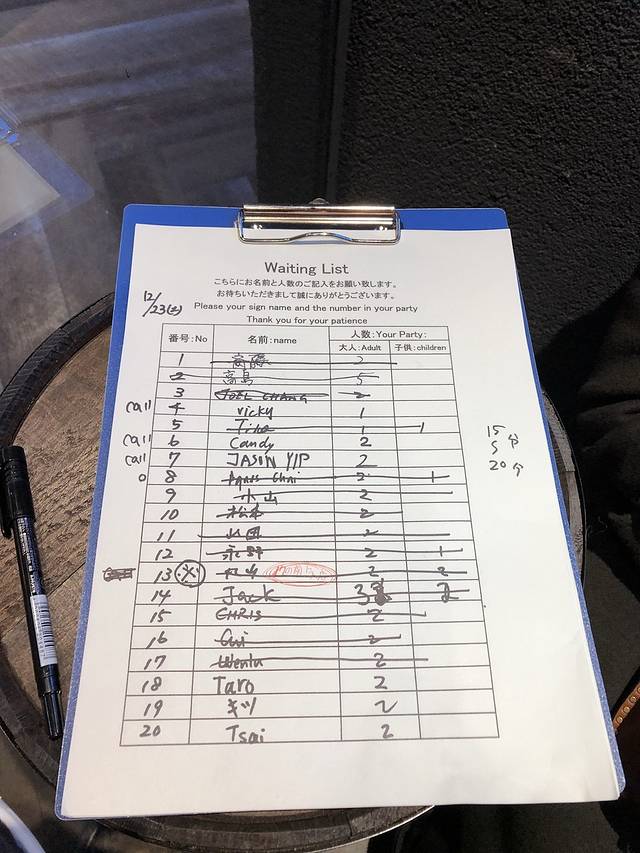 Waiting List
こちらにお名前と人数のご記入をお願い致します。
お待ちいただきまして誠にありがとうございます。
Please your sign name and the number in your party
Thank you for your patience
12/23(土)
番号:No 名前:name 人数:Your Party:
大人:Adult 子供:children
1 斎藤 2
2 高島 5
3 JOEL CHANG 2
call 4 vicky 1
5 1 1
call 6 Candy 2
call 7 JASIN YIP 2
0 8 Agnes Chui 2 1
9 小山 2
10 松本 2
11 山田 2
12 永野 2 1
13 丸山 2 2
14 Jack 3 2
15 CHRIS 2
16 Cui 2
17 Wenlu 2
18 Taro 2
19 キツ 2
20 Tsai 2
15分
5
20分